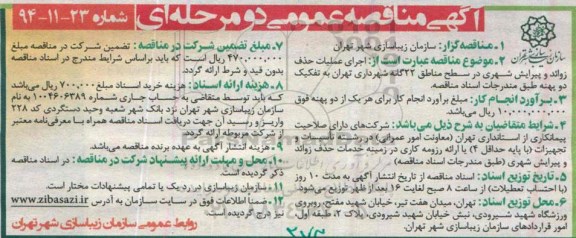 آگهی مناقصه عمومی دو مرحله‌ای شماره ۲۳-۱۱-۹۴
۱. مناقصه‌گزار: سازمان زیباسازی شهر تهران
۲. موضوع مناقصه عبارت است از: اجرای عملیات حذف
زوائد و پیرایش شهری در سطح مناطق ۲۲گانه شهرداری تهران به تفکیک
دو پهنه طبق مندرجات اسناد مناقصه.
۳. برآورد انجام کار: مبلغ برآورد انجام کار برای هر یک از دو پهنه فوق
ریال می‌باشد.
۴. شرایط متقاضیان به شرح ذیل می‌باشد: شرکت‌های دارای صلاحیت
پیمانکاری از استانداری تهران (معاونت امور عمرانی) در رشته تأسیسات و
تجهیزات (با پایه حداقل ۴) با ارائه رزومه کاری در زمینه خدمات حذف زوائد
و پیرایش شهری (طبق مندرجات اسناد مناقصه)
۵. تاریخ توزیع اسناد: اسناد مناقصه از تاریخ انتشار آگهی به مدت ۱۰ روز
(با احتساب تعطیلات) از ساعت ۸ صبح لغایت ۱۶ بعد از ظهر توزیع می‌شود.
۶. محل توزیع اسناد: تهران، میدان هفت تیر، خیابان شهید مفتح، روبروی
ورزشگاه شهید شیرودی، نبش خیابان شهید شیرودی، پلاک ۲، طبقه اول،
امور قراردادهای سازمان زیباسازی شهر تهران.
۷. مبلغ تضمین شرکت در مناقصه: تضمین شرکت در مناقصه مبلغ
۴۷۰.۰۰۰.۰۰۰ ریال است که باید براساس شرایط مندرج در اسناد مناقصه
بدون قید و شرط ارائه گردد.
۸. هزینه ارائه اسناد: هزینه خرید اسناد مبلغ ۷۰۰.۰۰۰ ریال می‌باشد
که باید توسط متقاضی به حساب جاری شماره ۱۰۰۴۶۰۶۳۸۹ به نام
سازمان زیباسازی شهر تهران نزد بانک شهر شعبه وحید دستگردی کد ۲۲۸
واریز و رسید آن جهت دریافت اسناد مناقصه همراه با معرفی‌نامه معتبر
از شرکت مربوطه ارائه گردد.
۹. هزینه انتشار آگهی به عهده برنده مناقصه می‌باشد.
۱۰. محل و مهلت ارائه پیشنهاد شرکت در مناقصه: در اسناد مناقصه
ذکر گردیده است.
۱۱. سازمان زیباسازی در رد یک یا تمامی پیشنهادات مختار است.
۱۲. ضمنا اطلاعات فوق در سایت سازمان به آدرس www.zibasazi.ir
نیز درج گردیده است.
روابط عمومی سازمان زیباسازی شهر تهران